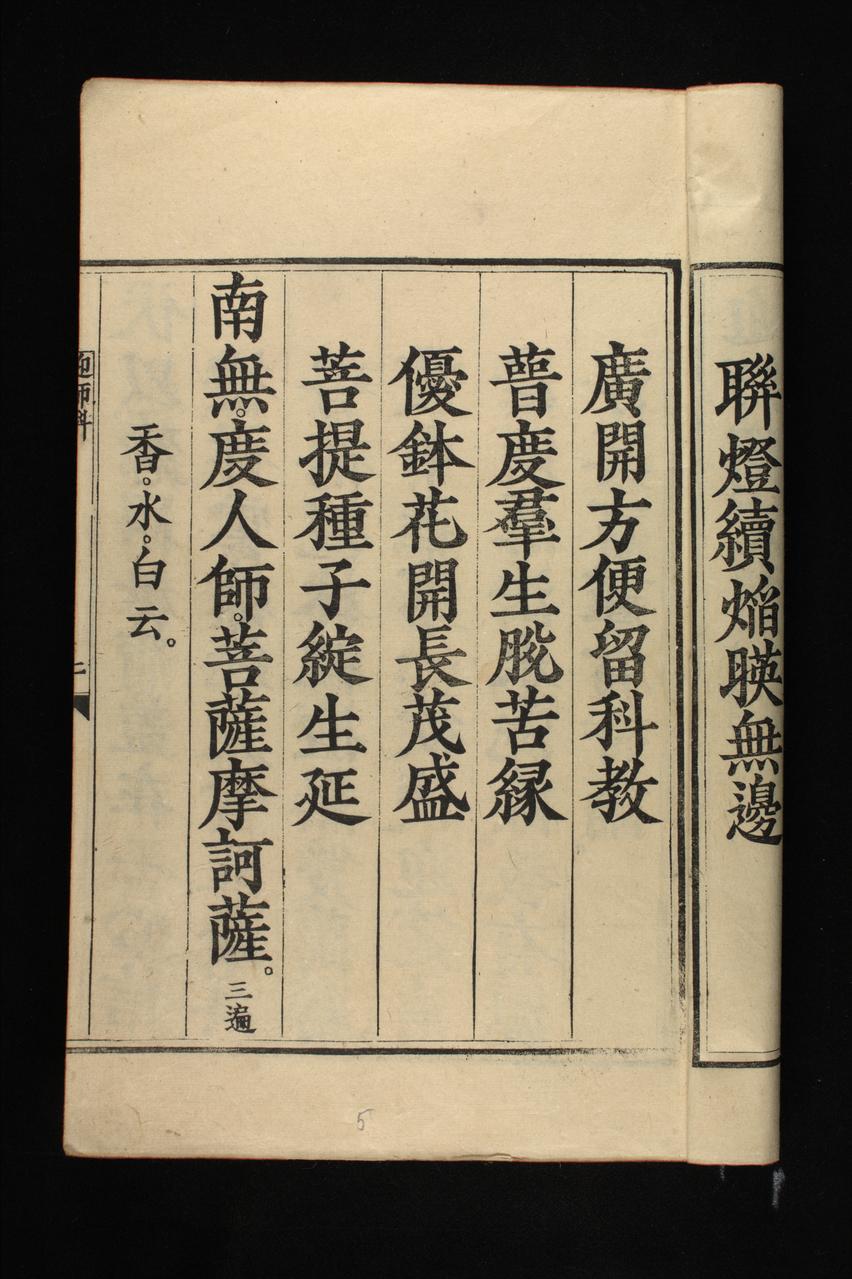 聯燈續焔暎無邊
廣開方便留科教
普度羣生脫苦緣
優鉢花開長茂盛
菩提種子綻生延
南無。度人師。菩薩摩訶薩。三遍
香。水。白云。
師科
5